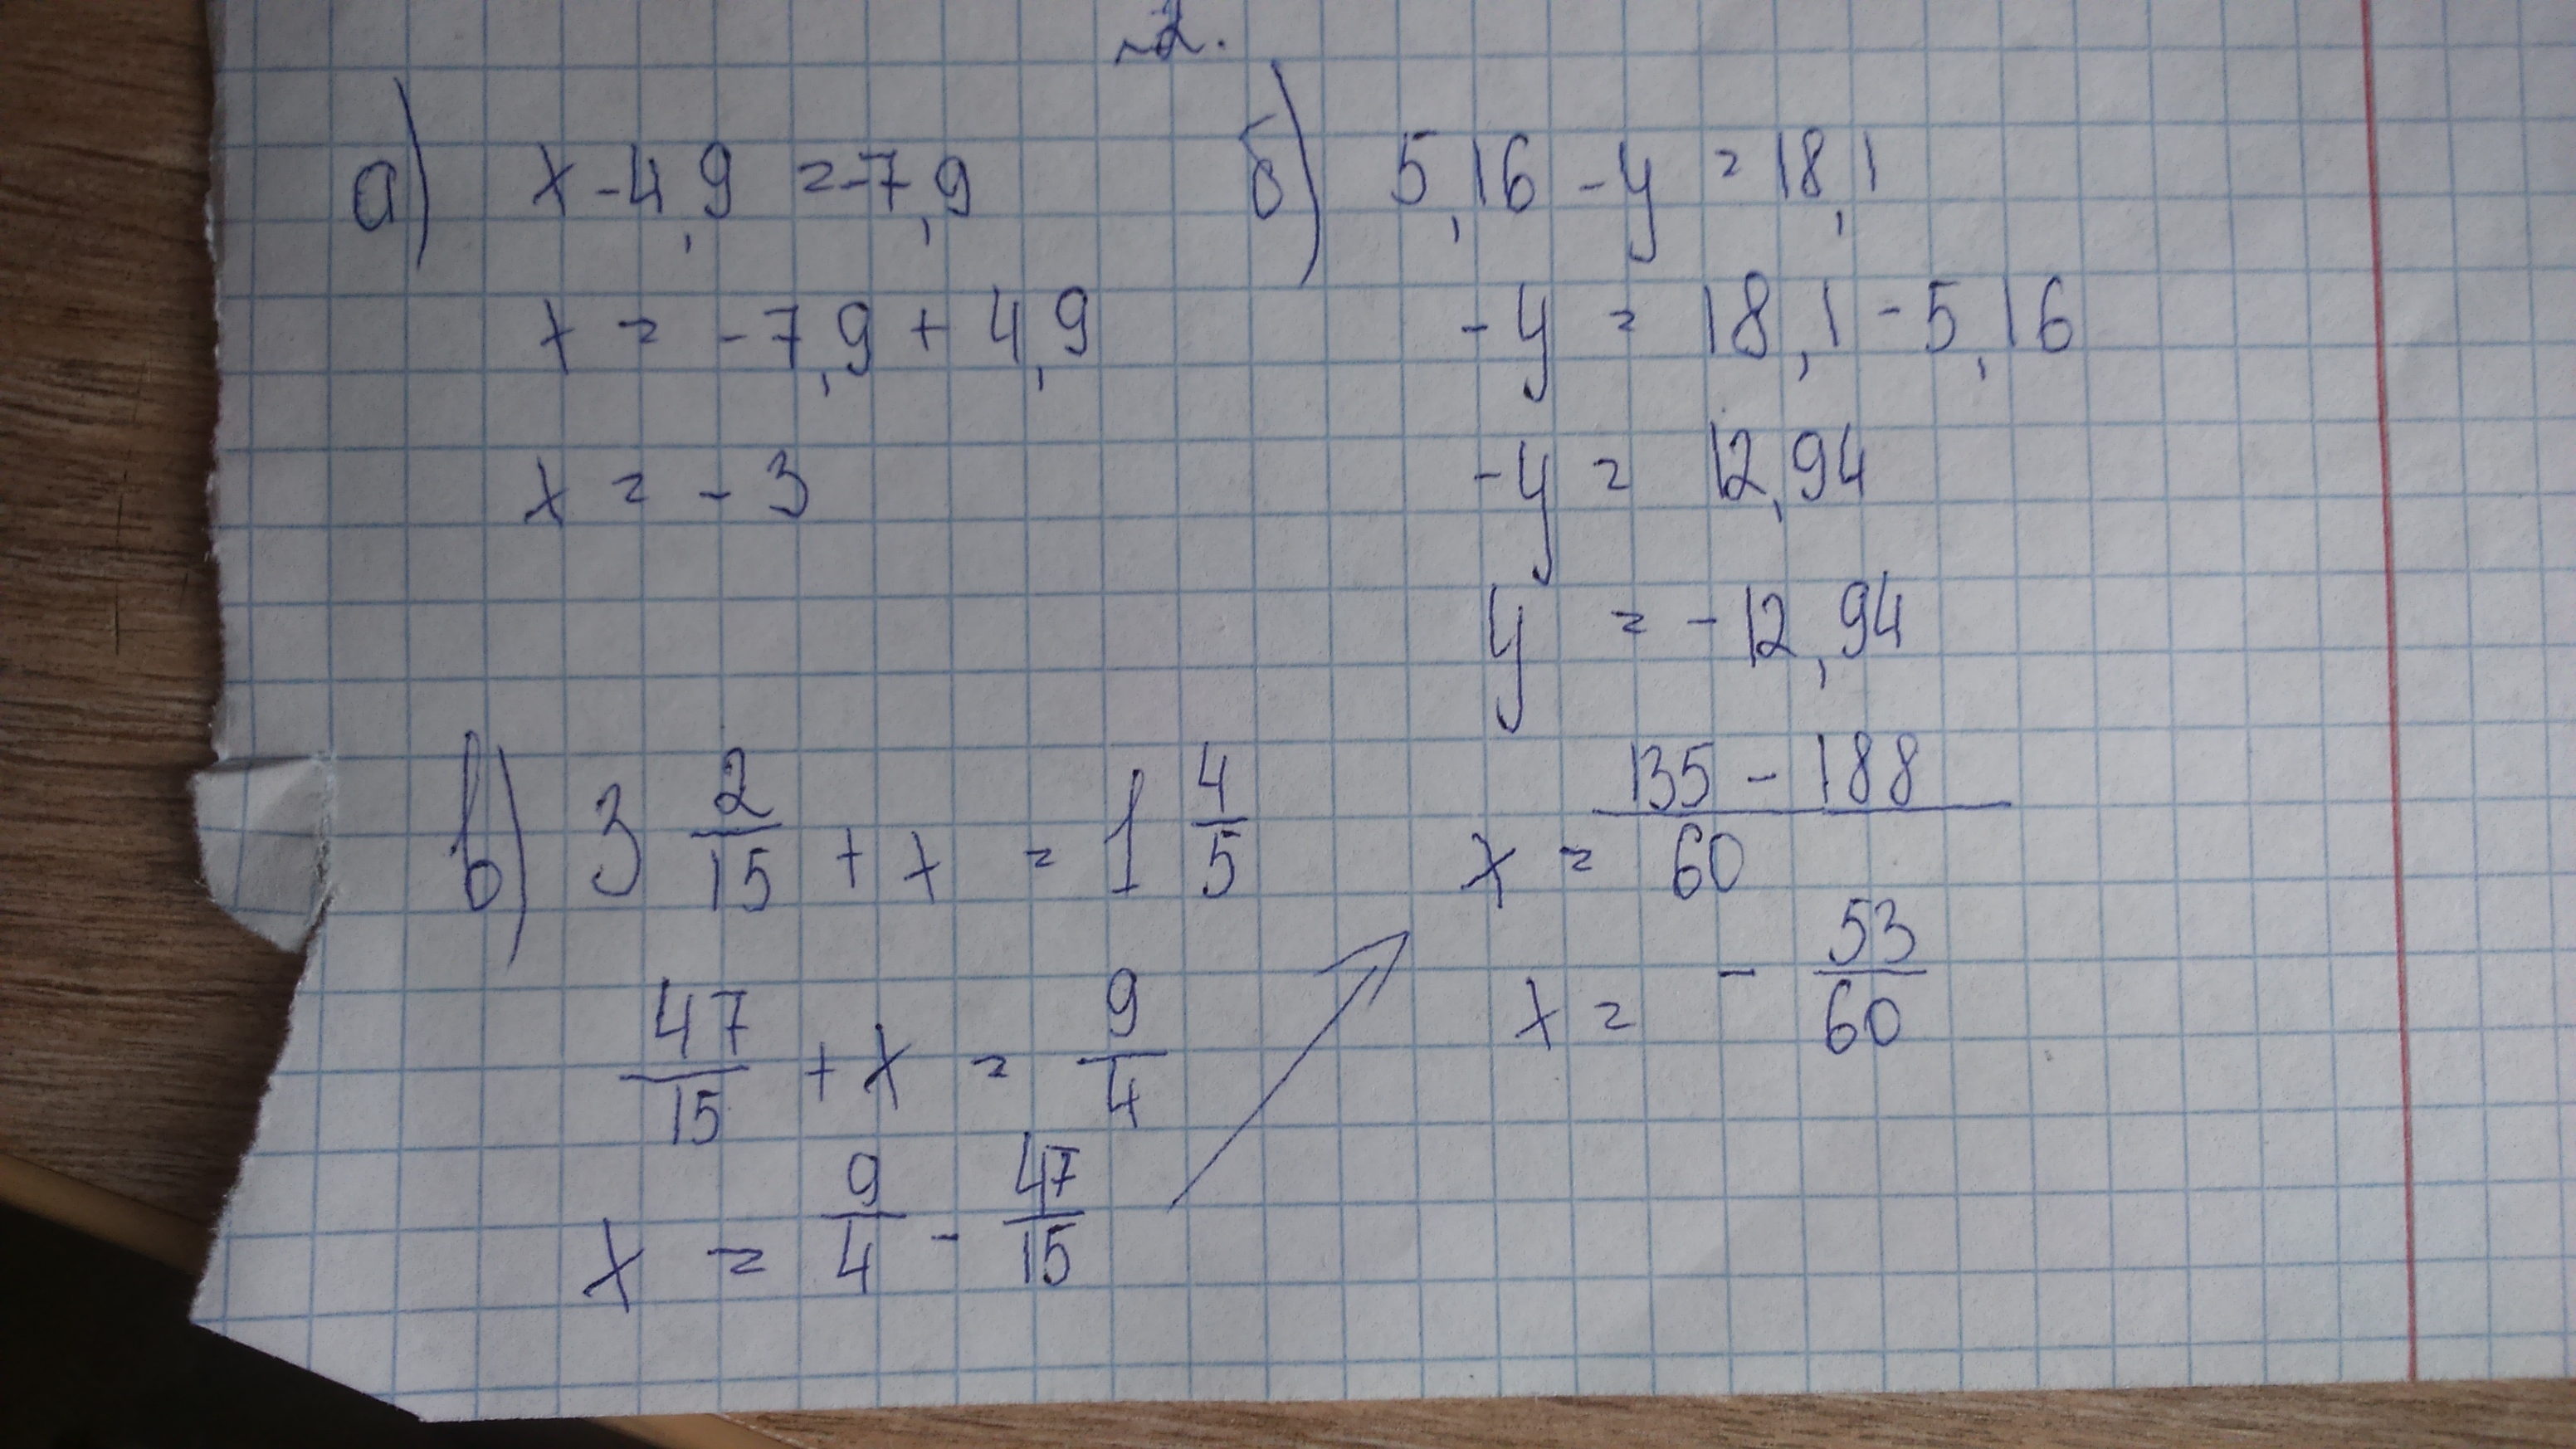 ~2.
а) x - 4,9 = -7,9
x = -7,9 + 4,9
x = -3
б) 5,16 - y = 18,1
-y = 18,1 - 5,16
-y = 12,94
y = -12,94
в) 3 2/15 + x = 1 4/5
47/15 + x = 9/4
x = 9/4 - 47/15
x = (135 - 188)/60
x = - 53/60